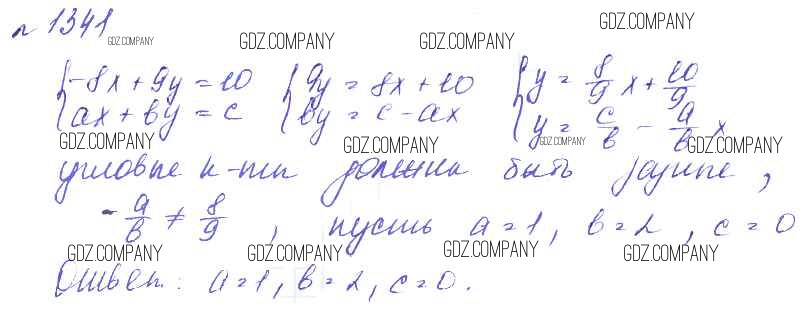 № 1341
GDZ.COMPANY GDZ.COMPANY GDZ.COMPANY GDZ.COMPANY
{-8x + 9y = 10 {9y = 8x + 10 {y = 8/9 x + 10/9
{ax + by = c {by = c - ax {y = c/b - a/b x
GDZ.COMPANY GDZ.COMPANY GDZ.COMPANY GDZ.COMPANY
угловые к-ты должны быть разные,
-a/b ≠ 8/9, пусть a = 1, b = 2, c = 0
GDZ.COMPANY GDZ.COMPANY GDZ.COMPANY GDZ.COMPANY
Ответ: a = 1, b = 2, c = 0.